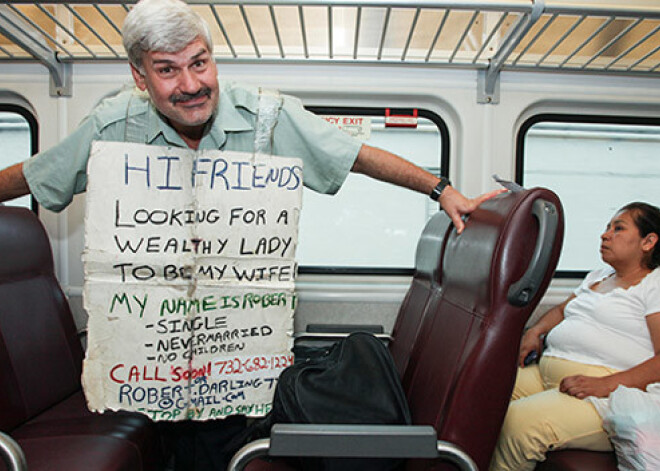 HI FRIENDS
LOOKING FOR A
WEALTHY LADY
TO BE MY WIFE!
MY NAME IS ROBERT
-SINGLE
-NEVER MARRIED
-NO CHILDREN
CALL SOON! 732-682-1224
OR
STOP BY AND SAY
EXIT